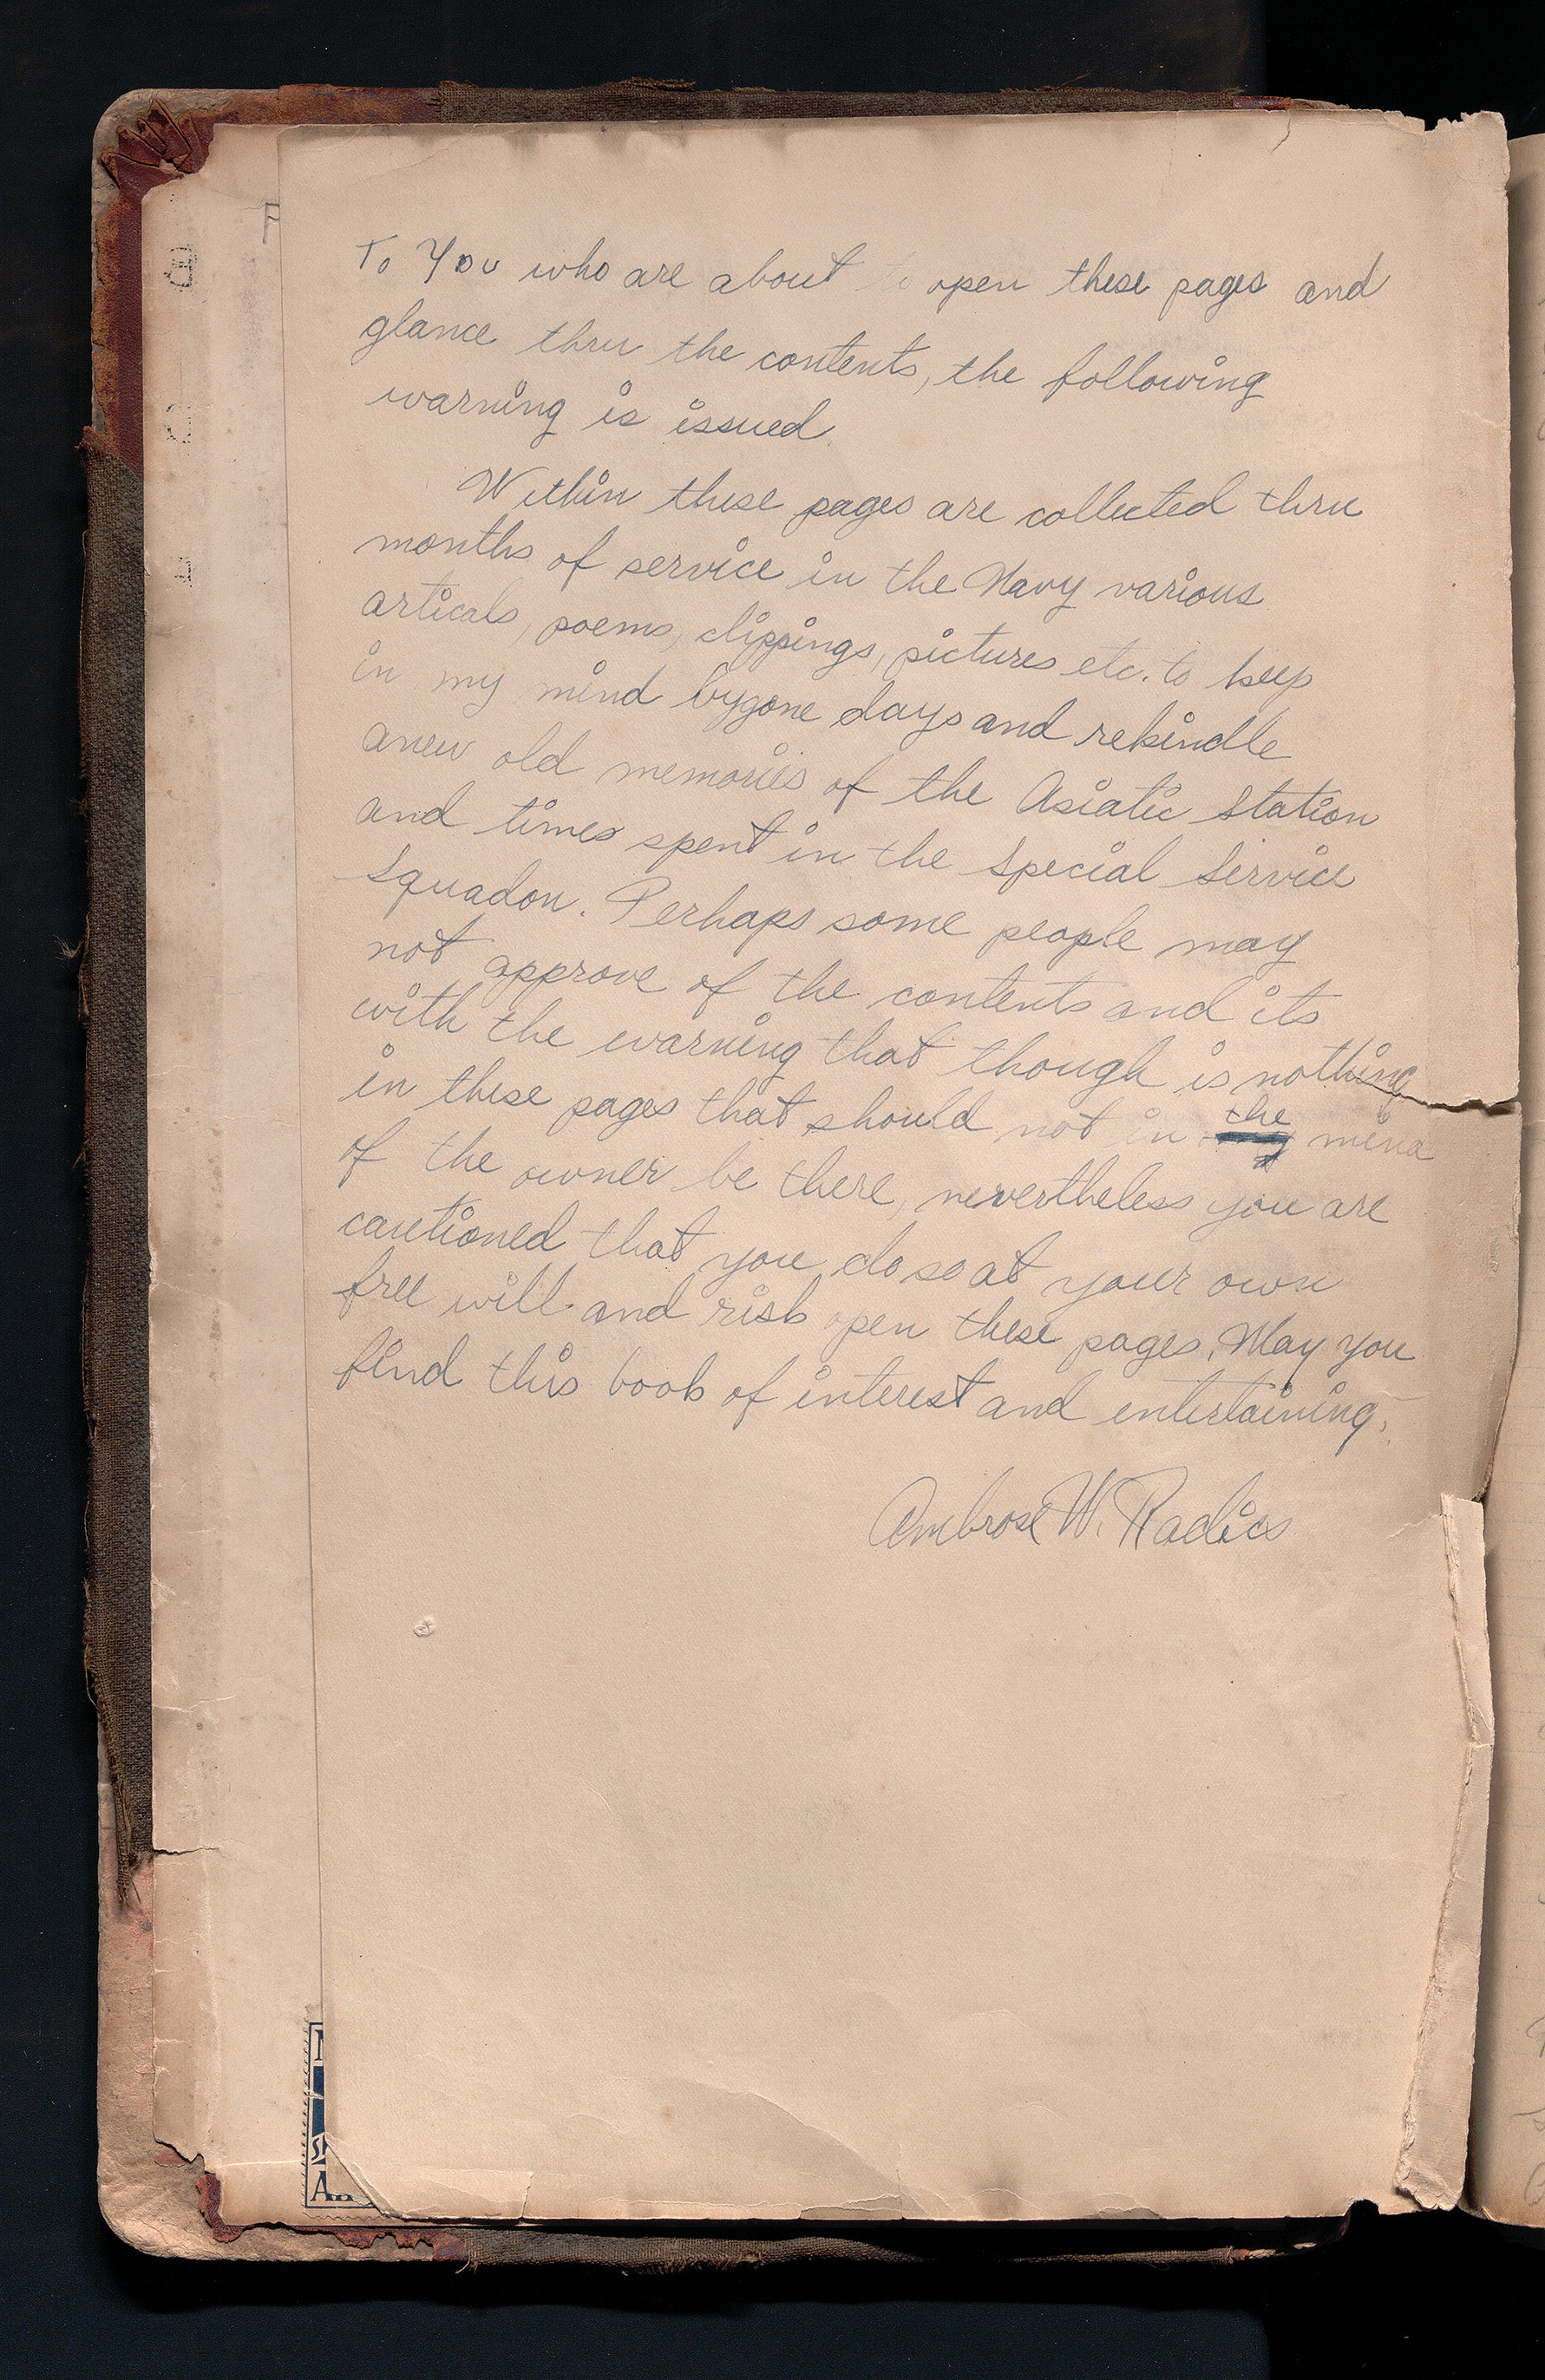 To You who are about to open these pages and
glance thru the contents, the following
warning is issued.
Within these pages are collected thru
months of service in the Navy various
articals, poems, clippings, pictures etc. to keep
in my mind bygone days and rekindle
anew old memories of the Asiatic Station
and times spent in the Special Service
Squadon. Perhaps some people may
not approve of the contents and its
with the warning that though is nothing
in these pages that should not in the mind
of the owner be there, nevertheless you are
cautioned that you do so at your own
free will and risk open these pages. May you
find this book of interest and entertaining.
Ambrose W. Radics